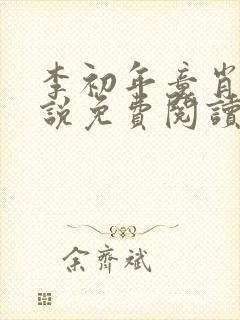 李初年章肖
說免費閱讀
余齊斌